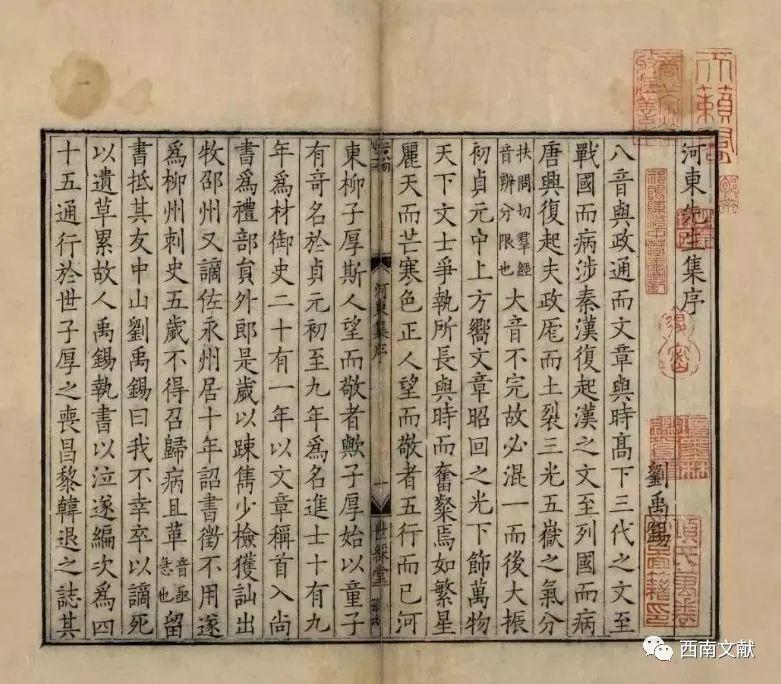 河東先生集序
劉禹錫
八音與政通而文章與時髙下三代之文至
戰國而病涉秦漢復起漢之文至列國而病
唐興復起夫政厖而土裂三光五嶽之氣分
扶問切羣經
音辨分限也
大音不完故必混一而後大振
初貞元中上方嚮文章昭回之光下飾萬物
天下文士爭執所長與時而奮粲焉如繁星
麗天而芒寒色正人望而敬者五行而已河
河東集序
一
世綵堂
東柳子厚斯人望而敬者歟子厚始以童子
有奇名於貞元初至九年爲名進士十有九
年爲材御史二十有一年以文章稱首入尚
書爲禮部貟外郎是歲以踈雋少檢獲訕出
牧邵州又謫佐永州居十年詔書徵不用遂
爲柳州刺史五歲不得召歸病且革
音亟
急也
留
書抵其友中山劉禹錫曰我不幸卒以謫死
以遺草累故人禹錫執書以泣遂編次爲四
十五通行於世子厚之喪昌黎韓退之誌其
天籟閣
西南文献